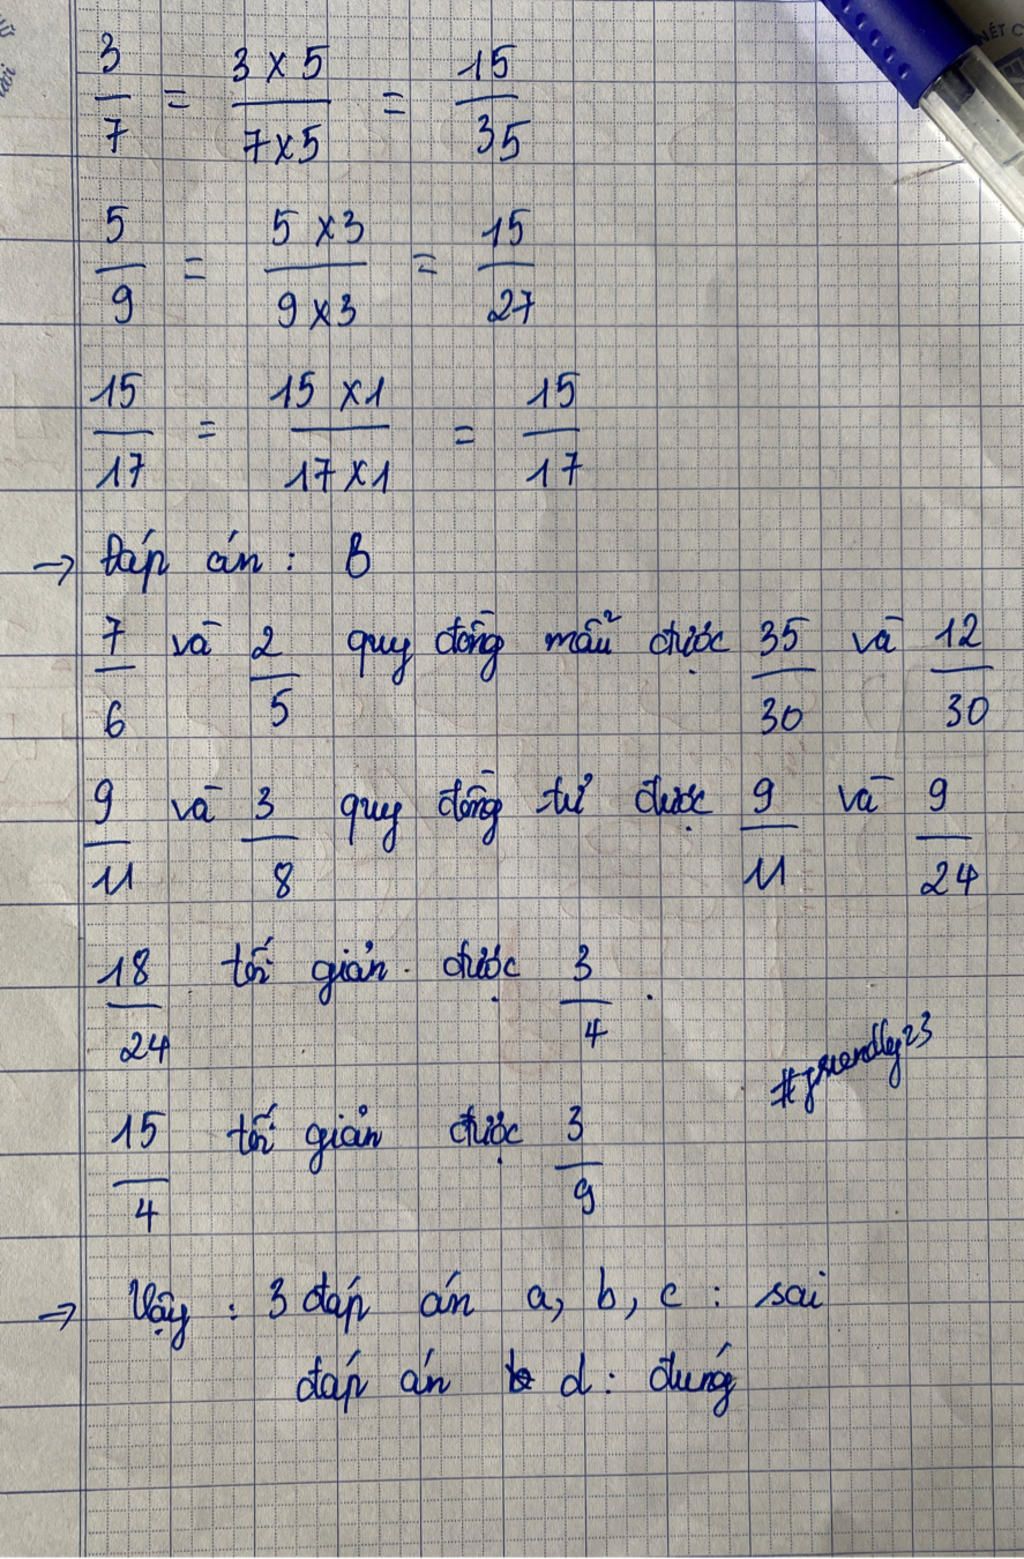 3/7 = 3 x 5/7 x 5 = 15/35
5/9 = 5 x 3/9 x 3 = 15/27
15/17 = 15 x 1/17 x 1 = 15/17
→ Đáp án : B
7/6 và 2/5 quy đồng mẫu được 35/30 và 12/30
9/11 và 3/8 quy đồng tử được 9/11 và 9/24
18/24 tối giản được 3/4 .
#friendly23
15/4 tối giản được 3/9
→ Vậy : 3 đáp án a, b, c : sai
đáp án d : đúng